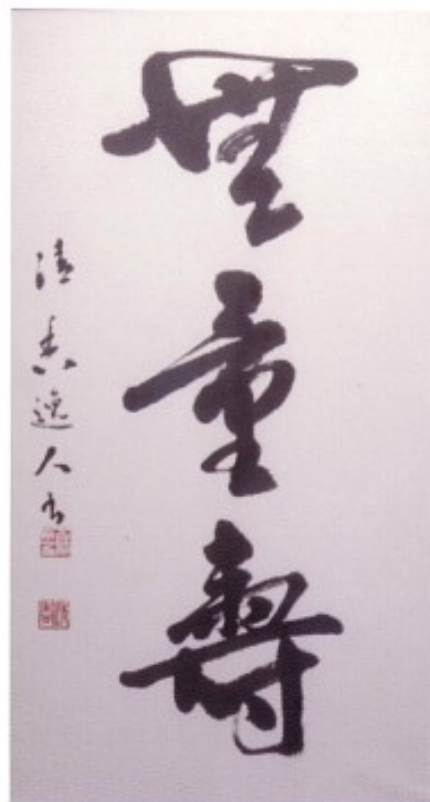 無量壽
清香逸人書